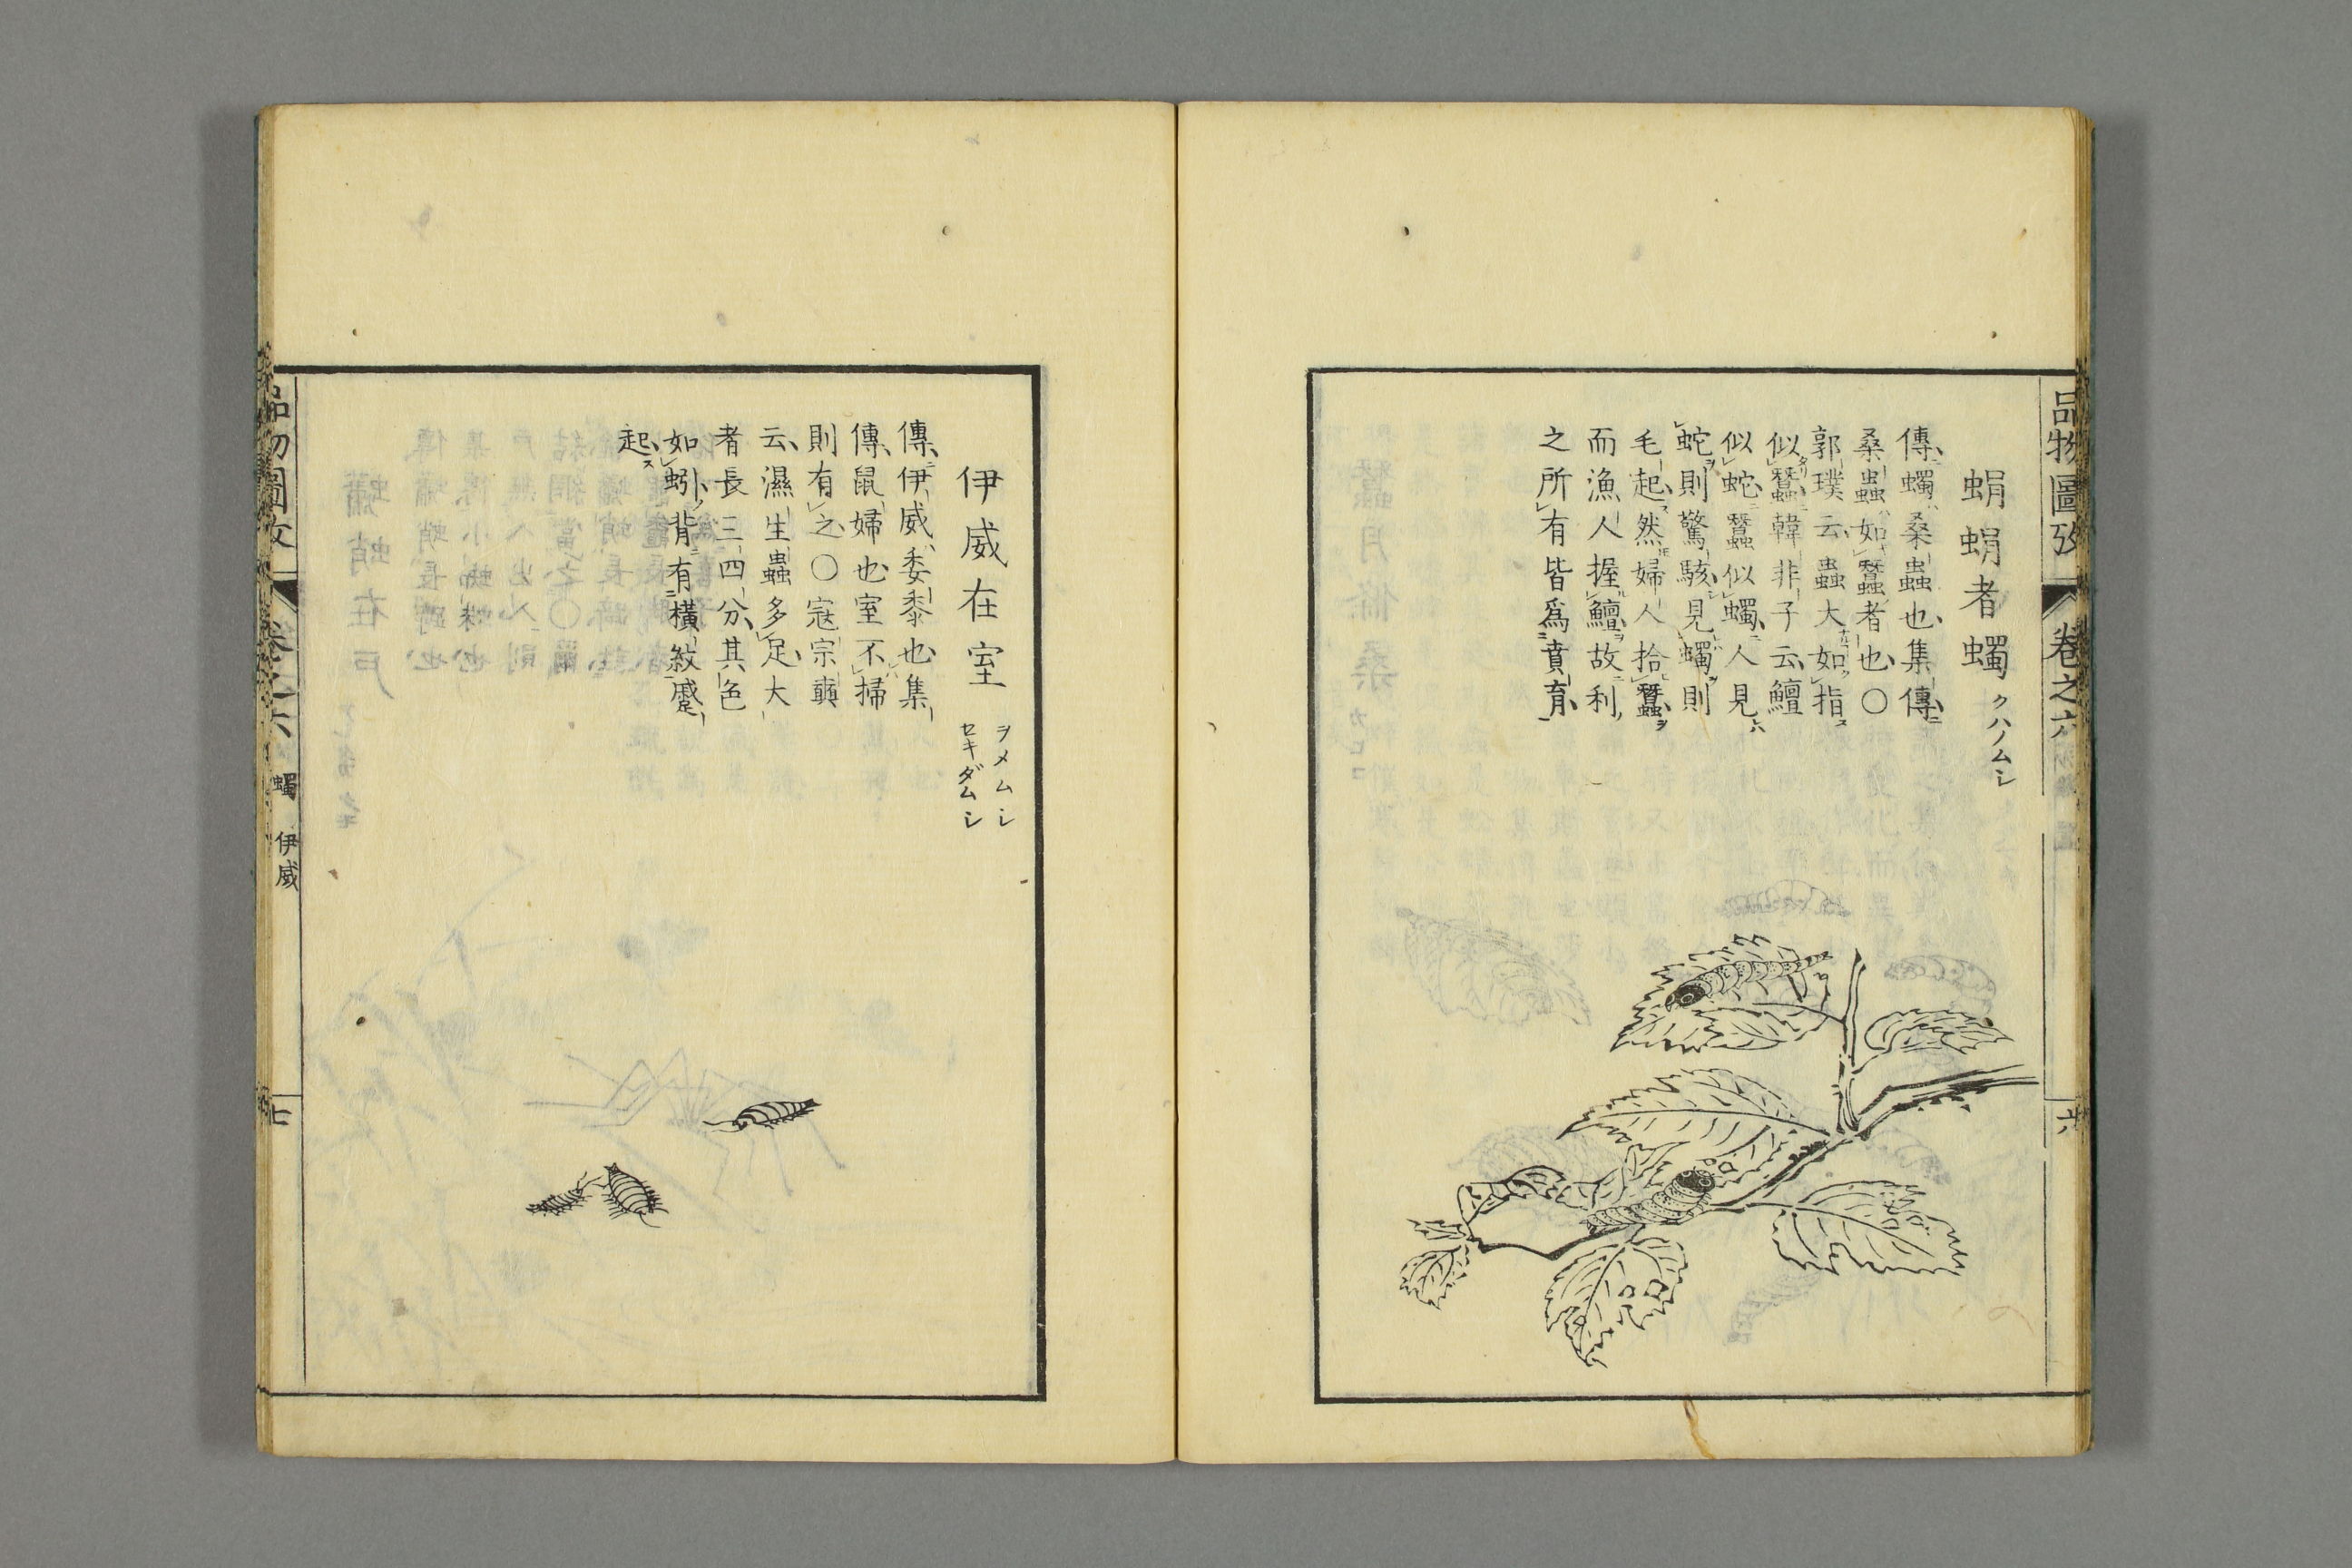 品物圖攷
卷之六
六
蜎蜎者蠋 クハノムシ
傳蠋桑蟲也集傳
桑蟲如蠶者也〇
郭璞云蟲大如指
似蠶韓非子云鱣
似蛇蠶似蠋人見
蛇則驚駭見蠋則
毛起然婦人拾蠶
而漁人握鱣故利
之所有皆爲賁育
伊威在室 ヲメムシ
セキダムシ
傳伊威委黍也集
傳鼠婦也室不掃
則有之〇寇宗奭
云濕生蟲多足大
者長三四分其色
如蚓背有橫紋蹙
起
品物圖攷
卷之六
蠋 伊威
七